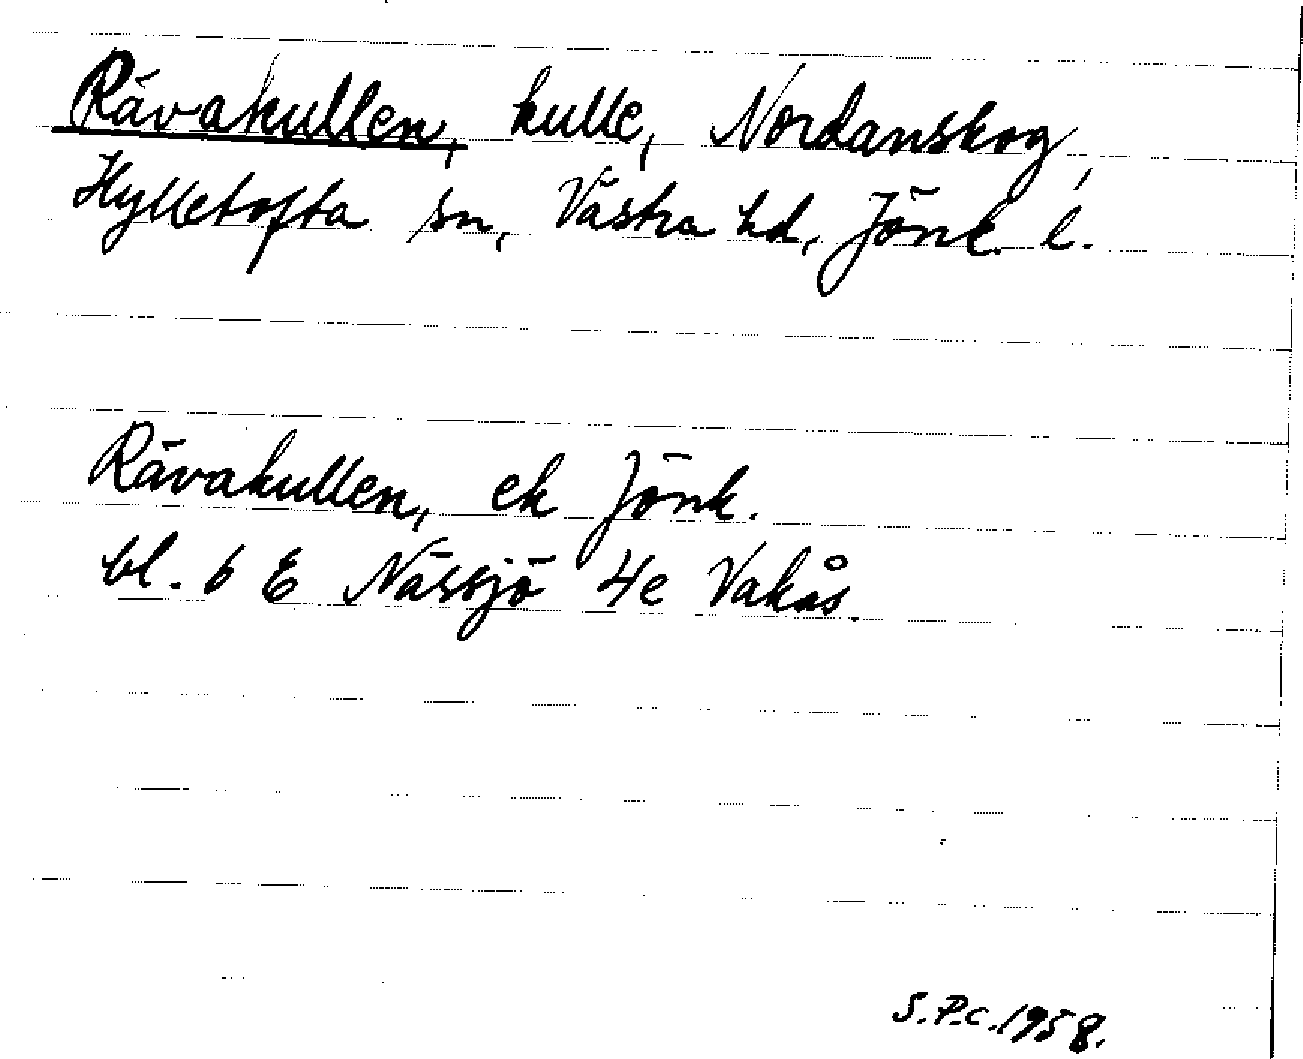 Rävakullen, kulle, Nordanskog,
Hylletofta sn, Västra hd, Jönk. l.
Rävakullen, ek Jönk.
bl. 6 E Nässjö 4e Vakås.
S.P.C. 1958.